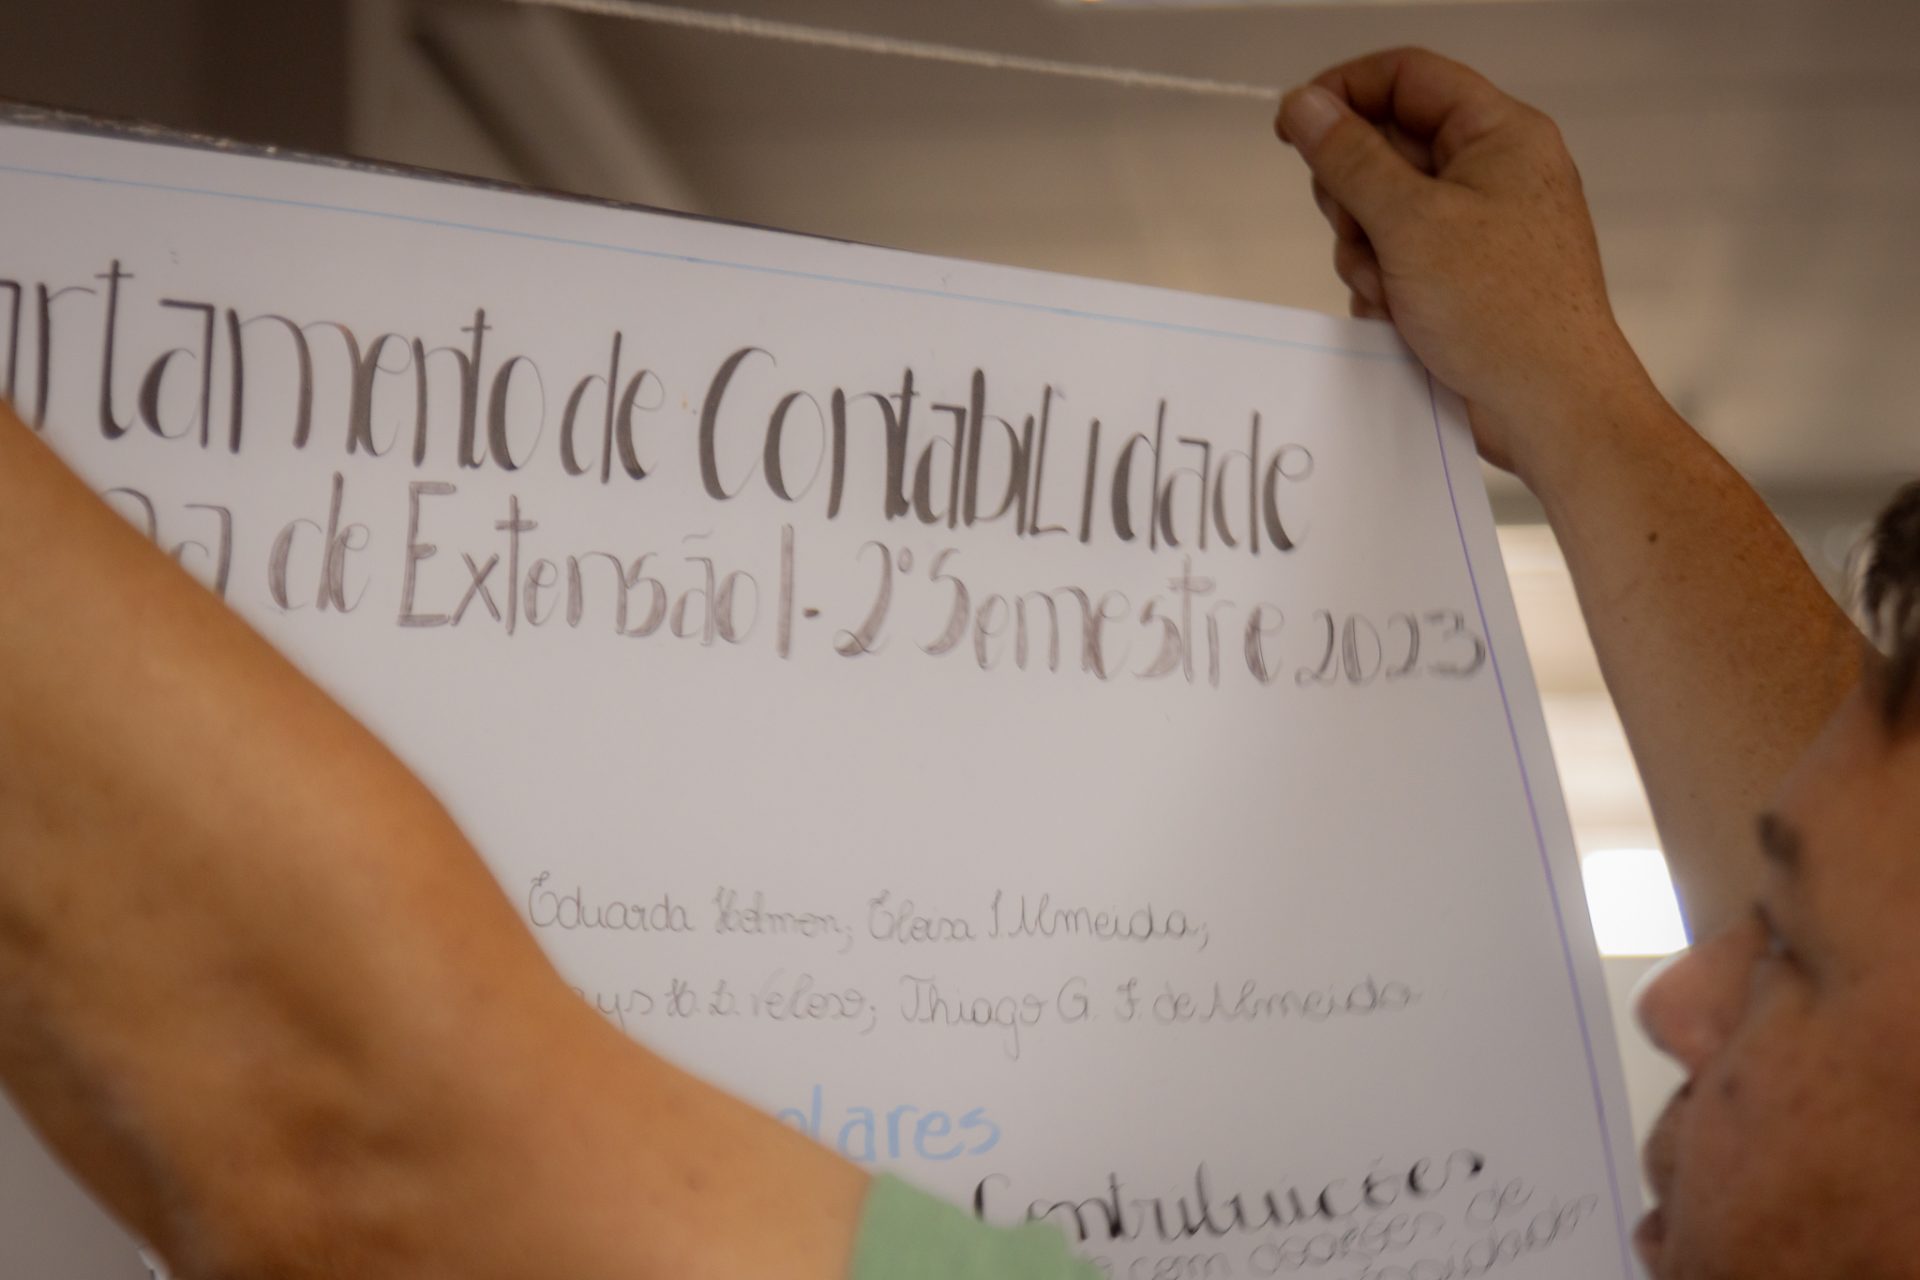 artamento de Contabilidade
de Extensão I - 2º Semestre 2023
Eduarda Helmer; Eloisa S Almeida;
Veloso; Thiago G. F. de Almeida
olares
Contribuições
com doações de